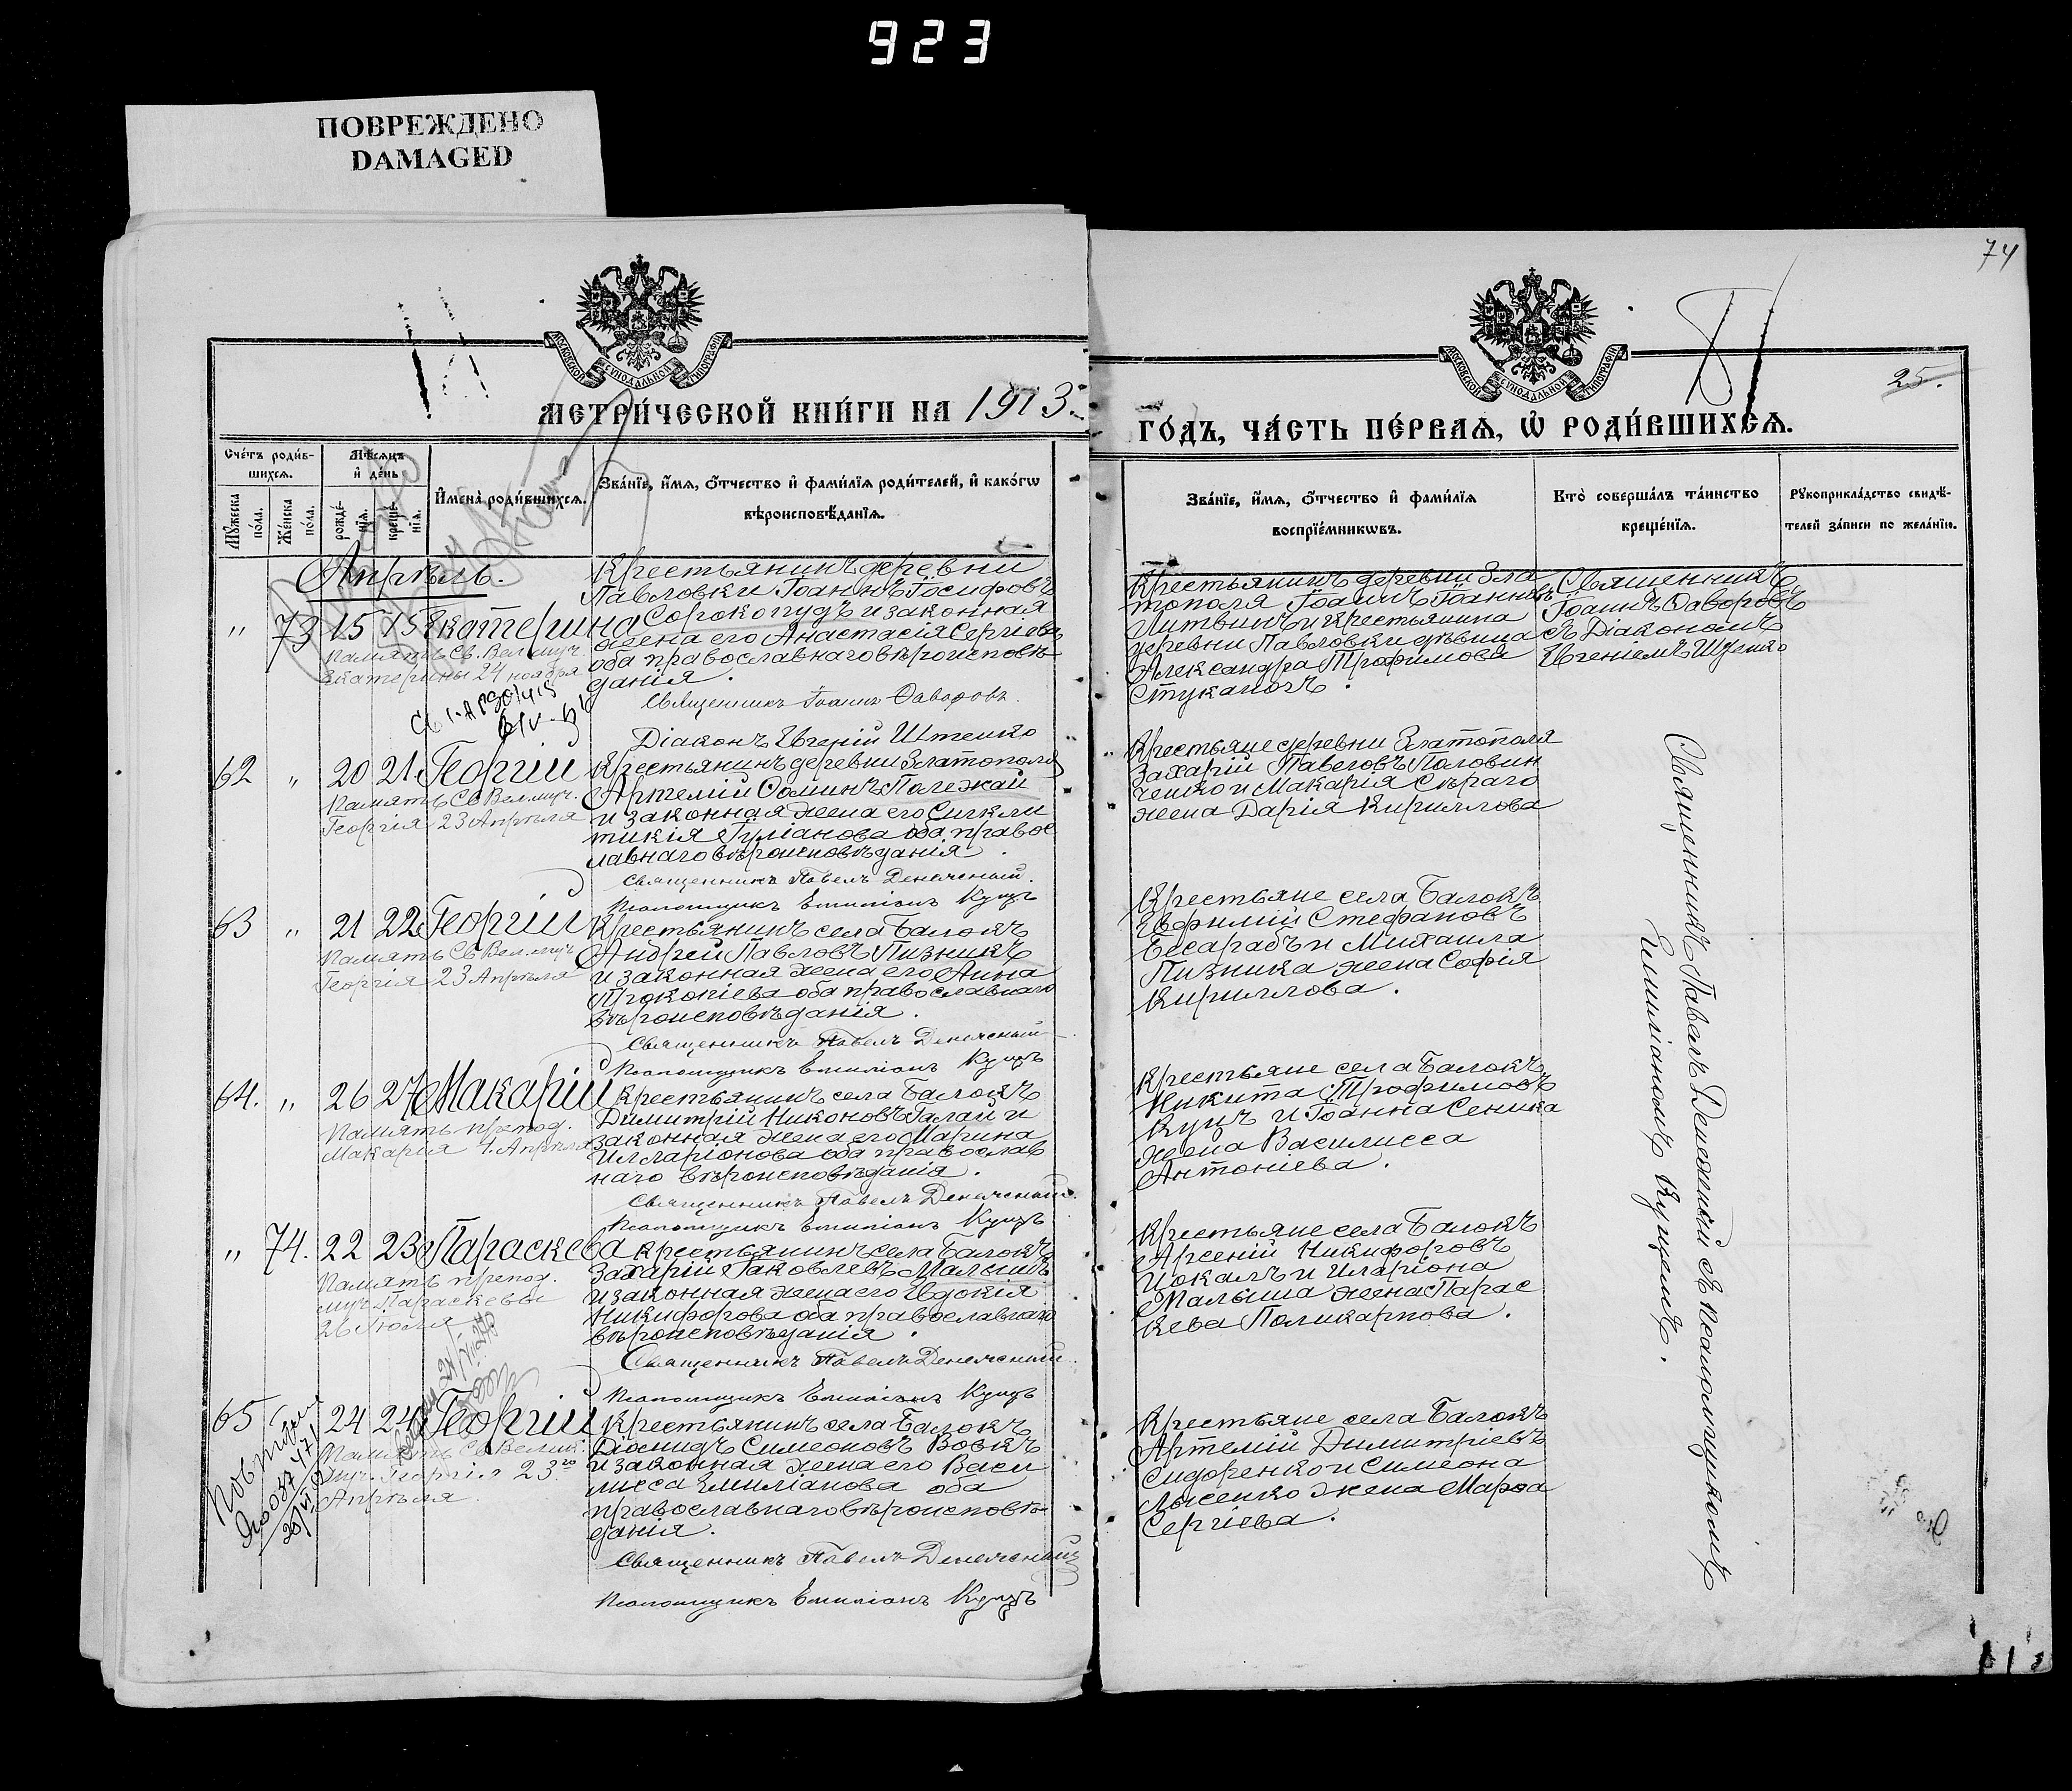 923
ПОВРЕЖДЕНО
DAMAGED
74
25.
МОСКОВСКОЙ СѴНОДАЛЬНОЙ ТИПОГРАФІИ
МОСКОВСКОЙ СѴНОДАЛЬНОЙ ТИПОГРАФІИ
МЕТРИ́ЧЕСКОЙ КНИ́ГИ НА 1913
ГО́ДЪ, ЧА́СТЬ ПЕ́РВАѦ, Ѡ҆ РОДИ́ВШИХСѦ.
Сче́тъ роди́в-
шихсѧ.
Мꙋ́жеска
по́ла.
Же́нска
по́ла.
Мѣ́сѧцъ
и҆ де́нь
рожде́-
нїѧ.
креще́-
нїѧ.
И҆мена̀ роди́вшихсѧ.
Зва́нїе, и҆́мѧ, ѻ҆́тчество и҆ фами́лїѧ роди́телей, и҆ како́гѡ
вѣроисповѣ́данїѧ.
Зва́нїе, и҆́мѧ, ѻ҆́тчество и҆ фами́лїѧ
воспрїе́мникѡвъ.
Кто̀ соверша́лъ та́инство
креще́нїѧ.
Рꙋкоприкла́дство свидѣ́-
телей за́писи по жела́нїю.
Апрѣль.
" 73 15 15 Екатерина
Память Св. Вел. муч.
Екатерины 24 ноября
Крестьянинъ деревни
Павловки Іоаннъ Іосифовъ
Сорокопудъ и законная
жена его Анастасія Сергіева
оба православнаго вѣроисповѣ
данія.
Священникъ Іоаннъ Ѳаворовъ
Діаконъ Евгеній Штенко
Крестьянинъ деревни Зла
тополя Іоаннъ Іоанновъ
Литвинъ и крестьянина
деревни Павловки дѣвица
Александра Трофимова
Стукаточъ.
Священникъ
Іоаннъ Ѳаворовъ
съ Діакономъ
Евгеніемъ Штенко
62 " 20 21 Георгій
Память Св. Вел. муч.
Георгія 23 Апрѣля
Крестьянинъ деревни Златополя
Артемій Ѳоминъ Полежай
и законная жена его Сигкли
тикія Іуліанова оба правос
лавнаго вѣроисповѣданія.
Священникъ Павелъ Денежный.
Псаломщикъ Емиліанъ Куцъ
Крестьяне деревни Златополя
Захарій Павловъ Половин
ченко и Макарія Сѣраго
жена Дарія Кириллова
63 " 21 22 Георгій
Память Св. Вел. муч.
Георгія 23 Апрѣля
Крестьянинъ села Балокъ
Андрей Павловъ Пизникъ
и законная жена его Анна
Прокопіева оба православнаго
вѣроисповѣданія.
Священникъ Павелъ Денежный
Псаломщикъ Емиліанъ Куцъ
Крестьяне села Балокъ
Евфимій Стефановъ
Бесарабъ и Михаила
Пизника жена Софія
Кириллова.
64. " 26 27 Макарій
Память препод.
Макарія 1. Апрѣля
Крестьянинъ села Балокъ
Димитрій Никоновъ Галай и
законная жена его Марина
Илларіонова оба православ
наго вѣроисповѣданія.
Священникъ Павелъ Денежный.
Псаломщикъ Емиліанъ Куцъ
Крестьяне села Балокъ
Никита Трофимовъ
Куцъ и Іоанна Сеника
жена Василисса
Антоніева.
" 74. 22 23 Параскева
Память препод.
муч. Параскевы
26 Іюля
Крестьянинъ села Балокъ
Захарій Іаковлевъ Малышъ
и законная жена его Евдокія
Никифорова оба православнаго
вѣроисповѣданія.
Священникъ Павелъ Денежный.
Псаломщикъ Емиліанъ Куцъ
Крестьяне села Балокъ
Арсеній Никифоровъ
Цокалъ и Иларіона
Малыша жена Парас
кева Поликарпова.
65 24 24 Георгій
Память Св. Велик.
муч. Георгія 23го
Апрѣля.
Крестьянинъ села Балокъ
Діонидъ Симеоновъ Вовкъ
и законная жена его Васи
лисса Емиліанова оба
православнаго вѣроисповѣ-
данія.
Священникъ Павелъ Денежный
Псаломщикъ Емиліанъ Куцъ
Крестьяне села Балокъ
Артемій Димитріевъ
Сидоренко и Симеона
Лысенко жена Марѳа
Сергіева.
Священникъ Павелъ Денежный съ псаломщикомъ
Емиліаномъ Куцемъ.